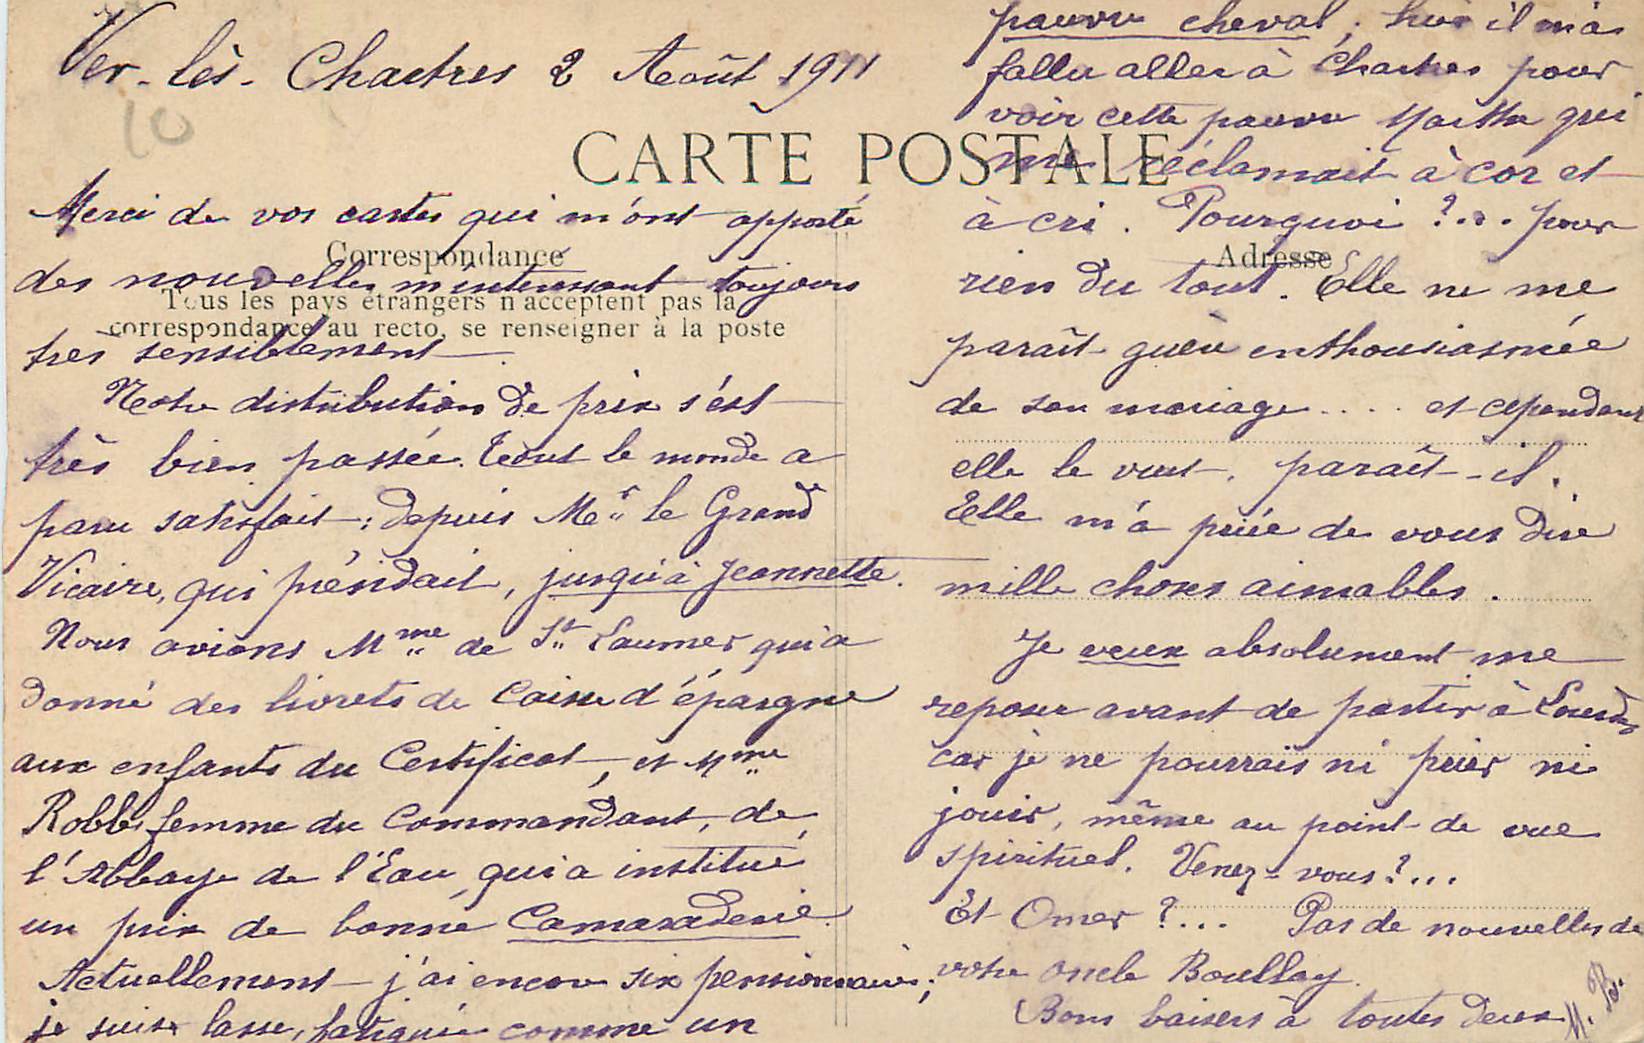 Ver-lès-Chartres 2 Août 1911
10
CARTE POSTALE
Correspondance
Tous les pays étrangers n'acceptent pas la
correspondance au recto, se renseigner à la poste
Adresse
Merci de vos cartes qui m'ont apporté
des nouvelles m'intéressant toujours
très sensiblement.
Notre distribution de prix s'est
très bien passée. Tout le monde a
paru satisfait : depuis Mr le Grand
Vicaire, qui présidait, jusqu'à Jeannette.
Nous avions Mme de St Laumer qui a
donné des livrets de Caisse d'épargne
aux enfants du Certificat, et Mme
Robbe, femme du Commandant, de
l'Abbaye de l'Eau, qui a institué
un prix de bonne Camaraderie.
Actuellement j'ai encore six pensionnaires ;
je suis lasse, fatiguée comme un
pauvre cheval ; hier il m'a
fallu aller à Chartres pour
voir cette pauvre Marthe qui
me réclamait à cor et
à cri. Pourquoi ?... pour
rien du tout. Elle ne me
paraît guère enthousiasmée
de son mariage .... et cependant
elle le veut, paraît-il.
Elle m'a priée de vous dire
mille choses aimables.
Je veux absolument me
reposer avant de partir à Lourdes
car je ne pourrais ni prier ni
jouir, même au point de vue
spirituel. Venez-vous ?...
Et Omer ?... Pas de nouvelles de
votre oncle Boullay.
Bons baisers à toutes deux
M. B.